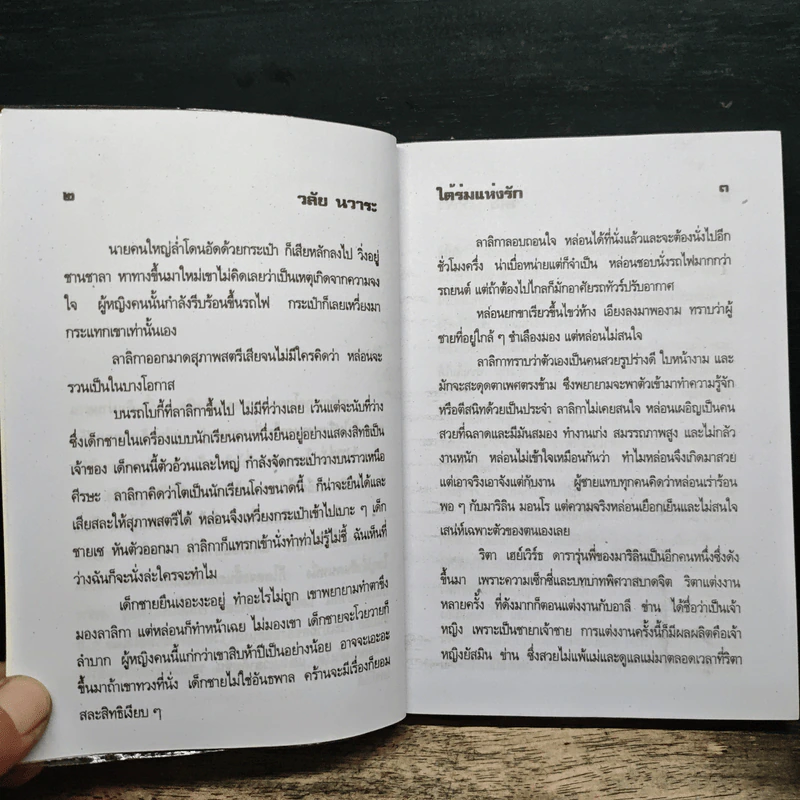 ๒
วลัย นวาระ
นายคนใหญ่ล่ำโดนอัดด้วยกระเป๋า ก็เสียหลักลงไป วิ่งอยู่
ชานชาลา หาทางขึ้นมาใหม่เขาไม่คิดเลยว่าเป็นเหตุเกิดจากความจง
ใจ ผู้หญิงคนนั้นกำลังรีบร้อนขึ้นรถไฟ กระเป๋าก็เลยเหวี่ยงมา
กระแทกเขาเท่านั้นเอง
ลาลิกาออกมาดสุภาพสตรีเสียจนไม่มีใครคิดว่า หล่อนจะ
รวนเป็นในบางโอกาส
บนรถโบกี้ที่ลาลิกาขึ้นไป ไม่มีที่ว่างเลย เว้นแต่จะนับที่ว่าง
ซึ่งเด็กชายในเครื่องแบบนักเรียนคนหนึ่งยืนอยู่อย่างแสดงสิทธิเป็น
เจ้าของ เด็กคนนี้ตัวอ้วนและใหญ่ กำลังจัดกระเป๋าวางบนราวเหนือ
ศีรษะ ลาลิกาคิดว่าโตเป็นนักเรียนโค่งขนาดนี้ ก็น่าจะยืนได้และ
เสียสละให้สุภาพสตรีได้ หล่อนจึงเหวี่ยงกระเป๋าเข้าไปเบาะ ๆ เด็ก
ชายเซ หันตัวออกมา ลาลิกาก็แทรกเข้านั่งทำท่าไม่รู้ไม่ชี้ ฉันเห็นที่
ว่างฉันก็จะนั่งล่ะใครจะทำไม
เด็กชายยืนเงอะงะอยู่ ทำอะไรไม่ถูก เขาพยายามทำตาขึง
มองลาลิกา แต่หล่อนก็ทำหน้าเฉย ไม่มองเขา เด็กชายจะโวยวายก็
ลำบาก ผู้หญิงคนนี้แก่กว่าเขาสิบห้าปีเป็นอย่างน้อย อาจจะเอะอะ
ขึ้นมาถ้าเขาทวงที่นั่ง เด็กชายไม่ใช่อันธพาล คร้านจะมีเรื่องก็ยอม
สละสิทธิเงียบ ๆ
ใต้ร่มแห่งรัก
๓
ลาลิกาลอบถอนใจ หล่อนได้ที่นั่งแล้วและจะต้องนั่งไปอีก
ชั่วโมงครึ่ง น่าเบื่อหน่ายแต่ก็จำเป็น หล่อนชอบนั่งรถไฟมากกว่า
รถยนต์ แต่ถ้าต้องไปไกลก็มักอาศัยรถทัวร์ปรับอากาศ
หล่อนยกขาเรียวขึ้นไขว่ห้าง เอียงลงมาพองาม ทราบว่าผู้
ชายที่อยู่ใกล้ ๆ ชำเลืองมอง แต่หล่อนไม่สนใจ
ลาลิกาทราบว่าตัวเองเป็นคนสวยรูปร่างดี ใบหน้างาม และ
มักจะสะดุดตาเพศตรงข้าม ซึ่งพยายามจะพาตัวเข้ามาทำความรู้จัก
หรือตีสนิทด้วยเป็นประจำ ลาลิกาไม่เคยสนใจ หล่อนเผอิญเป็นคน
สวยที่ฉลาดและมีมันสมอง ทำงานเก่ง สมรรถภาพสูง และไม่กลัว
งานหนัก หล่อนไม่เข้าใจเหมือนกันว่า ทำไมหล่อนจึงเกิดมาสวย
แต่เอาจริงเอาจังแต่กับงาน ผู้ชายแทบทุกคนคิดว่าหล่อนเร่าร้อน
พอ ๆ กับมาริลิน มอนโร แต่ความจริงหล่อนเยือกเย็นและไม่สนใจ
เสน่ห์เฉพาะตัวของตนเองเลย
ริตา เฮย์เวิร์ธ ดารารุ่นพี่ของมาริลินเป็นอีกคนหนึ่งซึ่งดัง
ขึ้นมา เพราะความเซ็กซี่และบทบาทพิศวาสบาดจิต ริตาแต่งงาน
หลายครั้ง ที่ดังมากก็ตอนแต่งงานกับอาลี ข่าน ได้ชื่อว่าเป็นเจ้า
หญิง เพราะเป็นชายาเจ้าชาย การแต่งงานครั้งนี้ก็มีผลผลิตคือเจ้า
หญิงยัสมิน ข่าน ซึ่งสวยไม่แพ้แม่และดูแลแม่มาตลอดเวลาที่ริตา